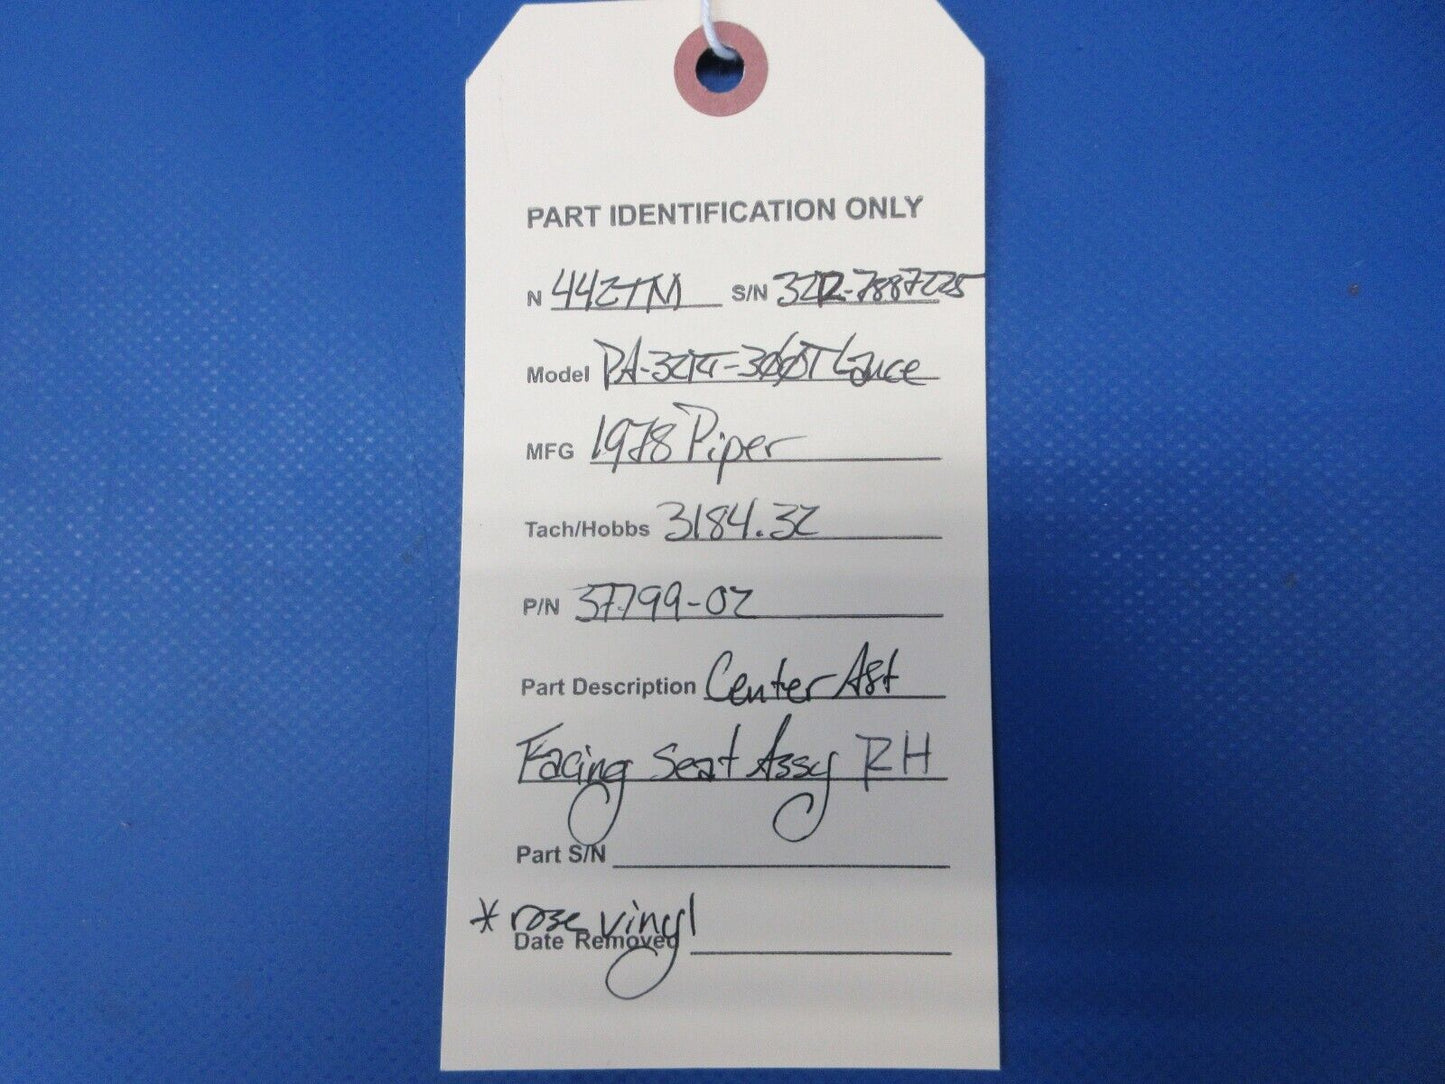 PART IDENTIFICATION ONLY
N 442TM S/N 32R-7887225
Model PA-32RT-300T Lance
MFG 1978 Piper
Tach/Hobbs 3184.32
P/N 37799-02
Part Description Center Aft
Facing Seat Assy RH
Part S/N
* rose vinyl
Date Removed